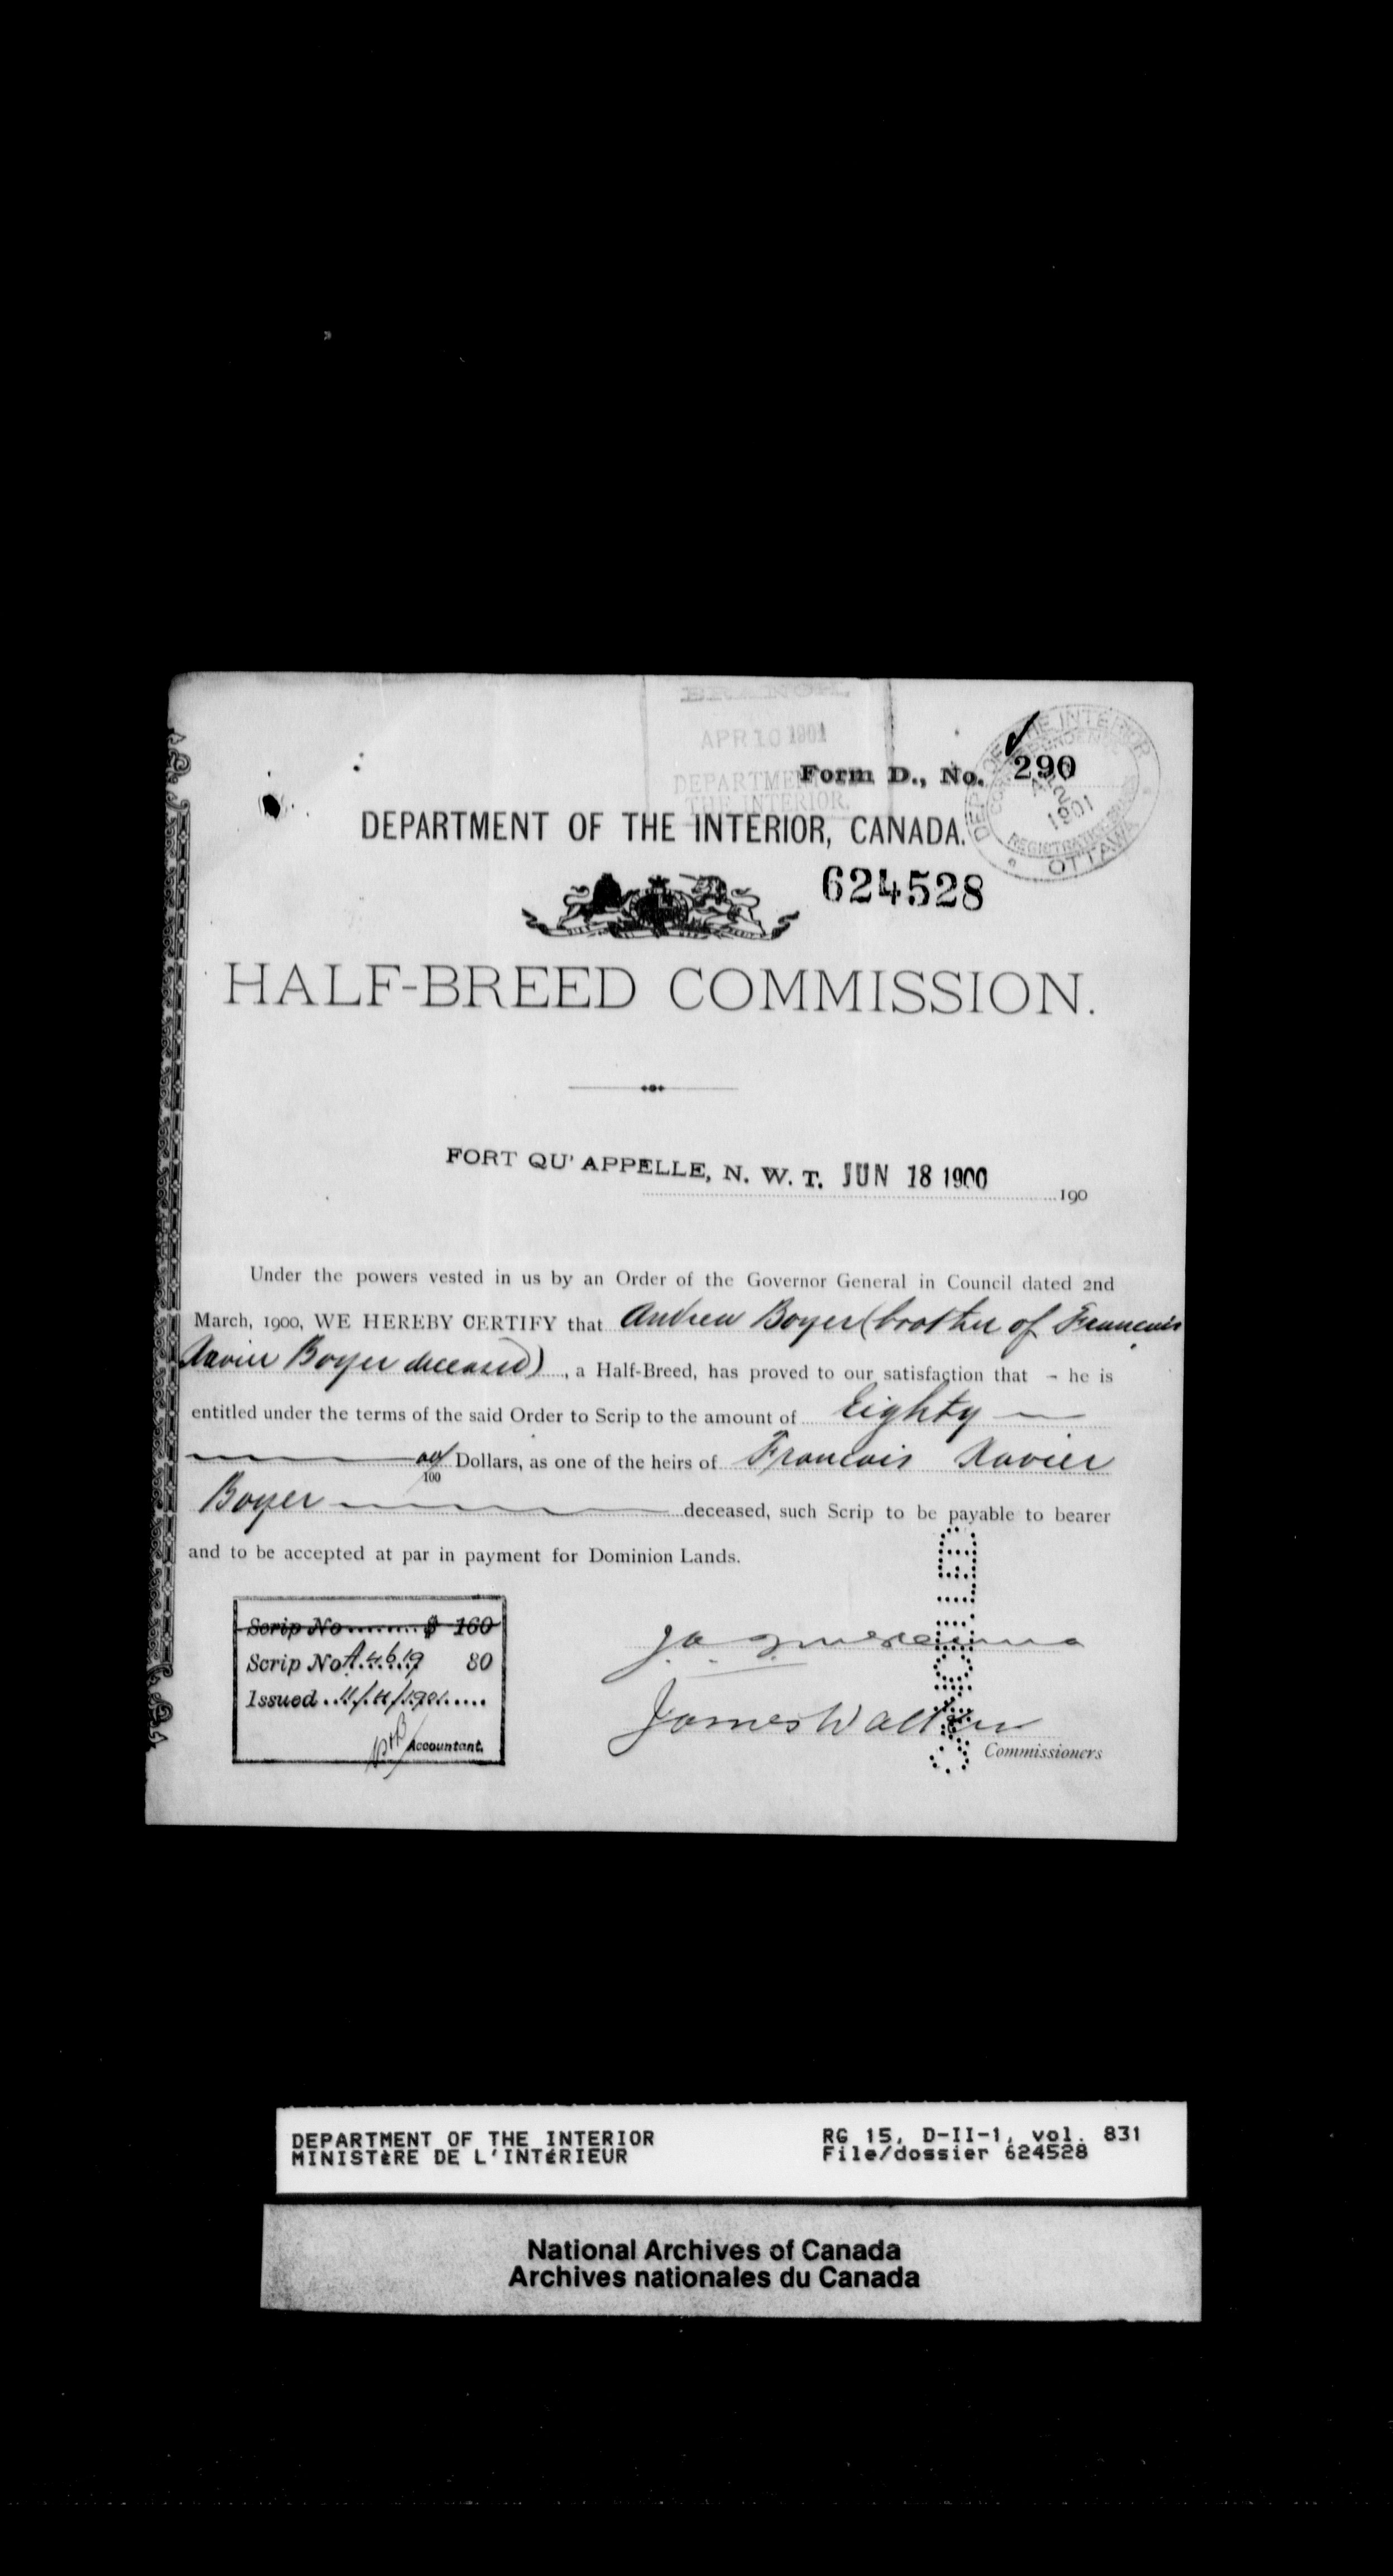 BRANCH,
APR 10 1901
DEPARTMENT
THE INTERIOR.
Form D., No. 290
DEPT. OF THE INTERIOR
1901
OTTAWA
DEPARTMENT OF THE INTERIOR, CANADA.
624528
HALF-BREED COMMISSION.
FORT QU'APPELLE, N. W. T. JUN 18 1900
190
Under the powers vested in us by an Order of the Governor General in Council dated 2nd
March, 1900, WE HEREBY CERTIFY that Andrew Boyer (brother of Francois
Xavier Boyer deceased), a Half-Breed, has proved to our satisfaction that - he is
entitled under the terms of the said Order to Scrip to the amount of Eighty
00/100 Dollars, as one of the heirs of Francois Xavier
Boyer deceased, such Scrip to be payable to bearer
and to be accepted at par in payment for Dominion Lands.
Scrip No......... $ 160
Scrip No A.4619 80
Issued ..11/4/1901.....
Accountant.
James Walker
Commissioners
CANCELLED
DEPARTMENT OF THE INTERIOR
MINISTÈRE DE L'INTÉRIEUR
RG 15, D-II-1, vol. 831
File/dossier 624528
National Archives of Canada
Archives nationales du Canada